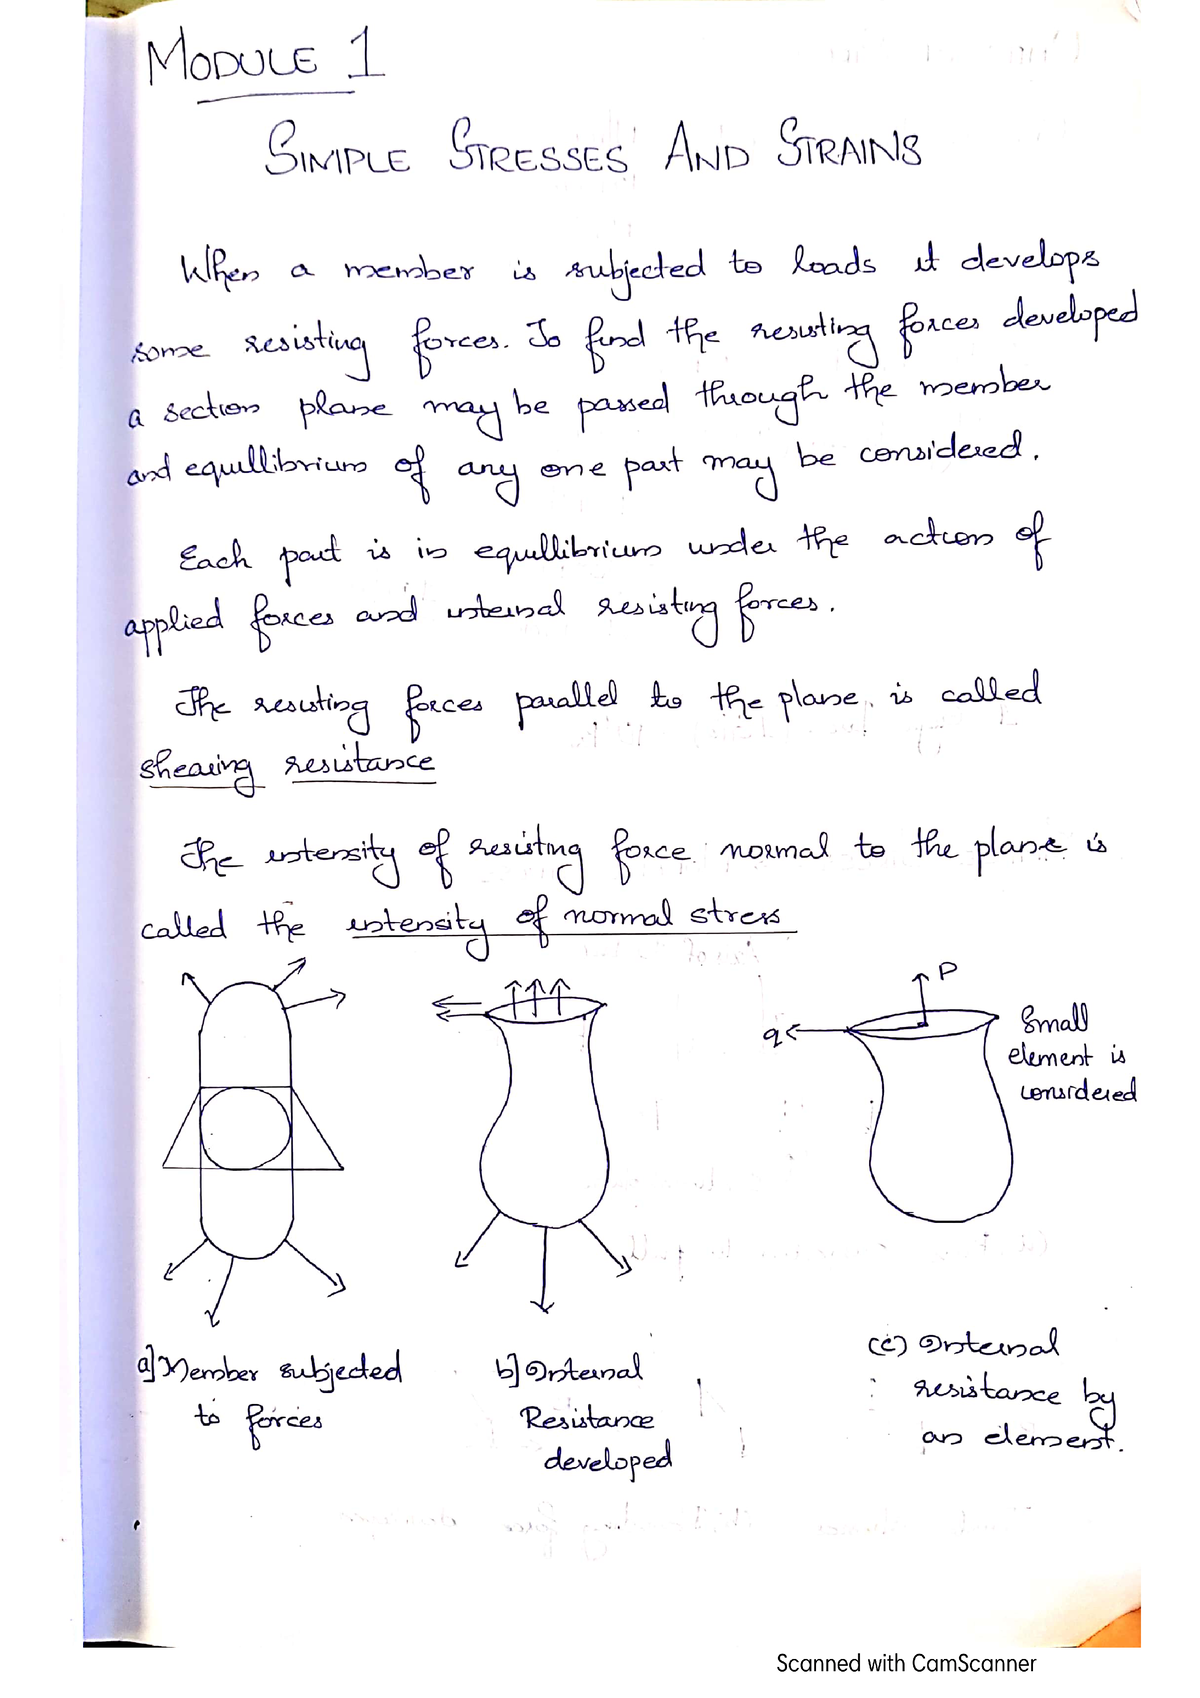 MODULE 1
SIMPLE STRESSES AND STRAINS
When a member is subjected to loads it develops
some resisting forces. To find the resisting forces developed
a section plane may be passed through the member
and equillibrium of any one part may be considered.
Each part is in equillibrium under the action of
applied forces and internal resisting forces.
The resisting forces parallel to the plane, is called
shearing resistance
The intensity of resisting force normal to the plane is
called the intensity of normal stress
P
q
Small
element is
considered
a] Member subjected
to forces
b] Internal
Resistance
developed
(c) Internal
resistance by
an element.
Scanned with CamScanner